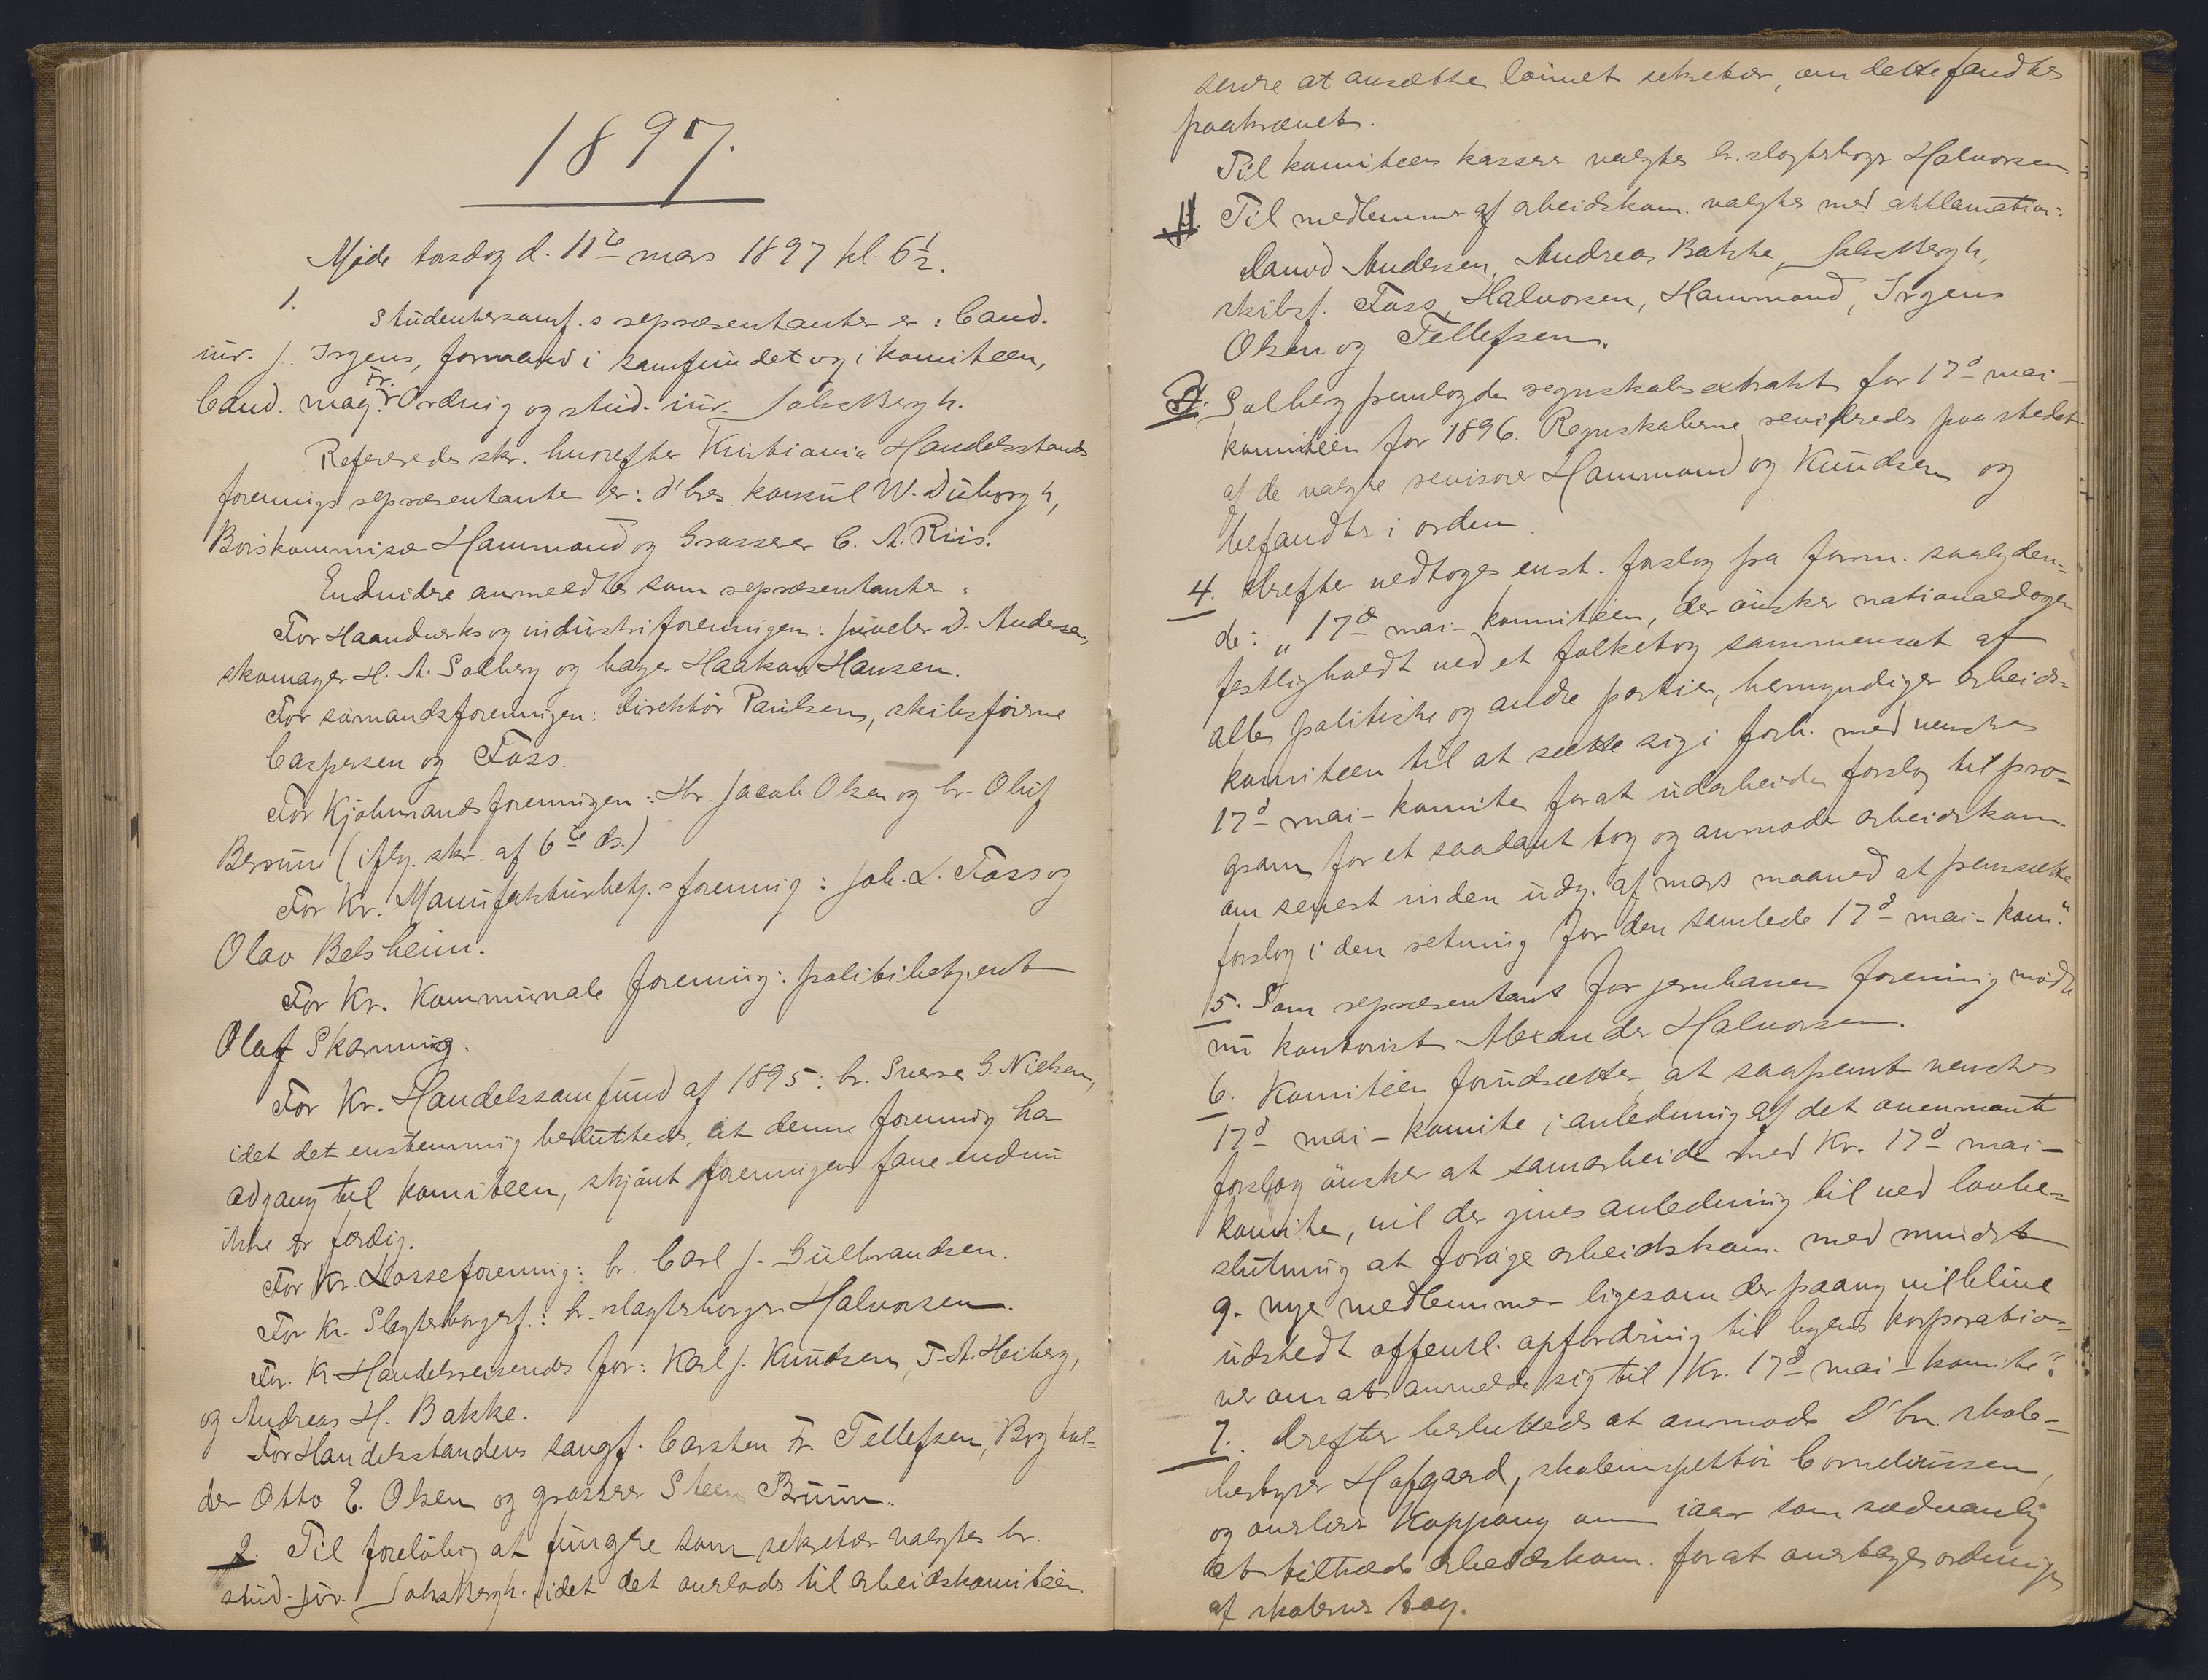 1897.
Møde torsdag d. 11te mars 1897 kl. 6 1/2.
1. Studentersamf.s repræsentanter er: Cand.
jur. J. Irgens, formand i samfundet og i komiteen,
Cand. mag. Fr. Ording og stud. jur.
Refereredes skr. hvorefter Kristiania Handelsstands
forenings repræsentanter er: d'hrr. konsul W. Duborgh,
Børskommisær Hammond og Grosserer C. A. Riis.
Endvidere anmeldtes som repræsentanter:
For Haandverks og industriforeningen: juveler D. Andersen,
skomager H. A. Solberg og bager Haakon Hansen.
For sømandsforeningen: direktör Paulsen, skibsförerne
Caspersen og Foss.
For Kjøbmandsforeningen: Hr. Jacob Olsen og hr. Oluf
(iflg. skr. af 6te ds.)
For Kr. Manufakturbetj.s forening: Joh. L. Foss og
Olav Belsheim.
For Kr. Kommunale forening: politibetjent
Olaf Skarning.
For Kr. Handelssamfund af 1895: hr. Sverre G. Nielsen,
idet det enstemmig besluttedes, at denne forening har
adgang til komiteen, skjönt foreningens fane endnu
ikke er færdig.
For Kr. Losseforening: hr. Carl J. Gulbrandsen.
For Kr. Slagterborgerf.: hr. slagterborger Halvorsen.
For Kr Handelsreisendes for: Karl J. Knudsen, T. A. Heiberg,
og Andreas H. Bakke.
For Handelsstandens sangf. Carsten Fr Tellefsen, Boghol=
der Otto E. Olsen og grosserer Steen Bruun.
2. Til foreløbig at fungere som sekretær valgtes hr.
stud. jur. idet det overlodes til arbeidskomiteen
senere at ansætte lönnet sekretær, om dette fandtes
paakrævet.
Til komiteens kasserer valgtes hr. slagterborger Halvorsen.
Til medlemmer af arbeidskom. valgtes med akklamation:
David Andersen, Andreas Bakke,
skibsf. Foss, Halvorsen, Hammond, Irgens
Olsen og Tellefsen.
3. Solberg fremlagde regnskabsextrakt for 17d mai-
komiteen for 1896. Regnskaberne revideredes paa stedet
af de valgte revisorer Hammond og Knudsen og
befandtes i orden.
4. Derefter vedtoges enst. forslag fra form. saalyden-
de: „17d mai-komiteen, der önsker nationaldagen
festligholdt ved et folketog sammensat af
alle politiske og andre partier, bemyndiger arbeids=
komiteen til at sætte sig i forb. med venstres
17d mai-komite for at udarbeide forslag til pro=
gram for et saadant tog og anmode arbeidskom.
om senest inden udg. af mars maaned at fremsætte
forslag i den retning for den samlede 17d mai-kom."
5. Som repræsentant for jernbanens forening mödte
nu kontorist Alexander Halvorsen.
6. Komiteen forudsætter, at saafremt venstres
17d mai-komite i anledning af det ovennævnte
forslag önsker at samarbeide med Kr. 17d mai-
komite, vil der gives anledning til ved lovbe=
slutning at foröge arbeidskom. med mindst
9. nye medlemmer ligesom der paany vil blive
udstedt offentl. opfordring til byens korporatio-
ner om at anmelde sig til "Kr. 17d mai-komite".
7. Derefter besluttedes at anmode D'hrr. skole-
bestyrer Hofgaard, skoleinspektör Corneliussen,
og overlærer Koppang om iaar som sædvanlig
at tiltræde arbeidskom. for at overtage ordningen
af skolernes tog.